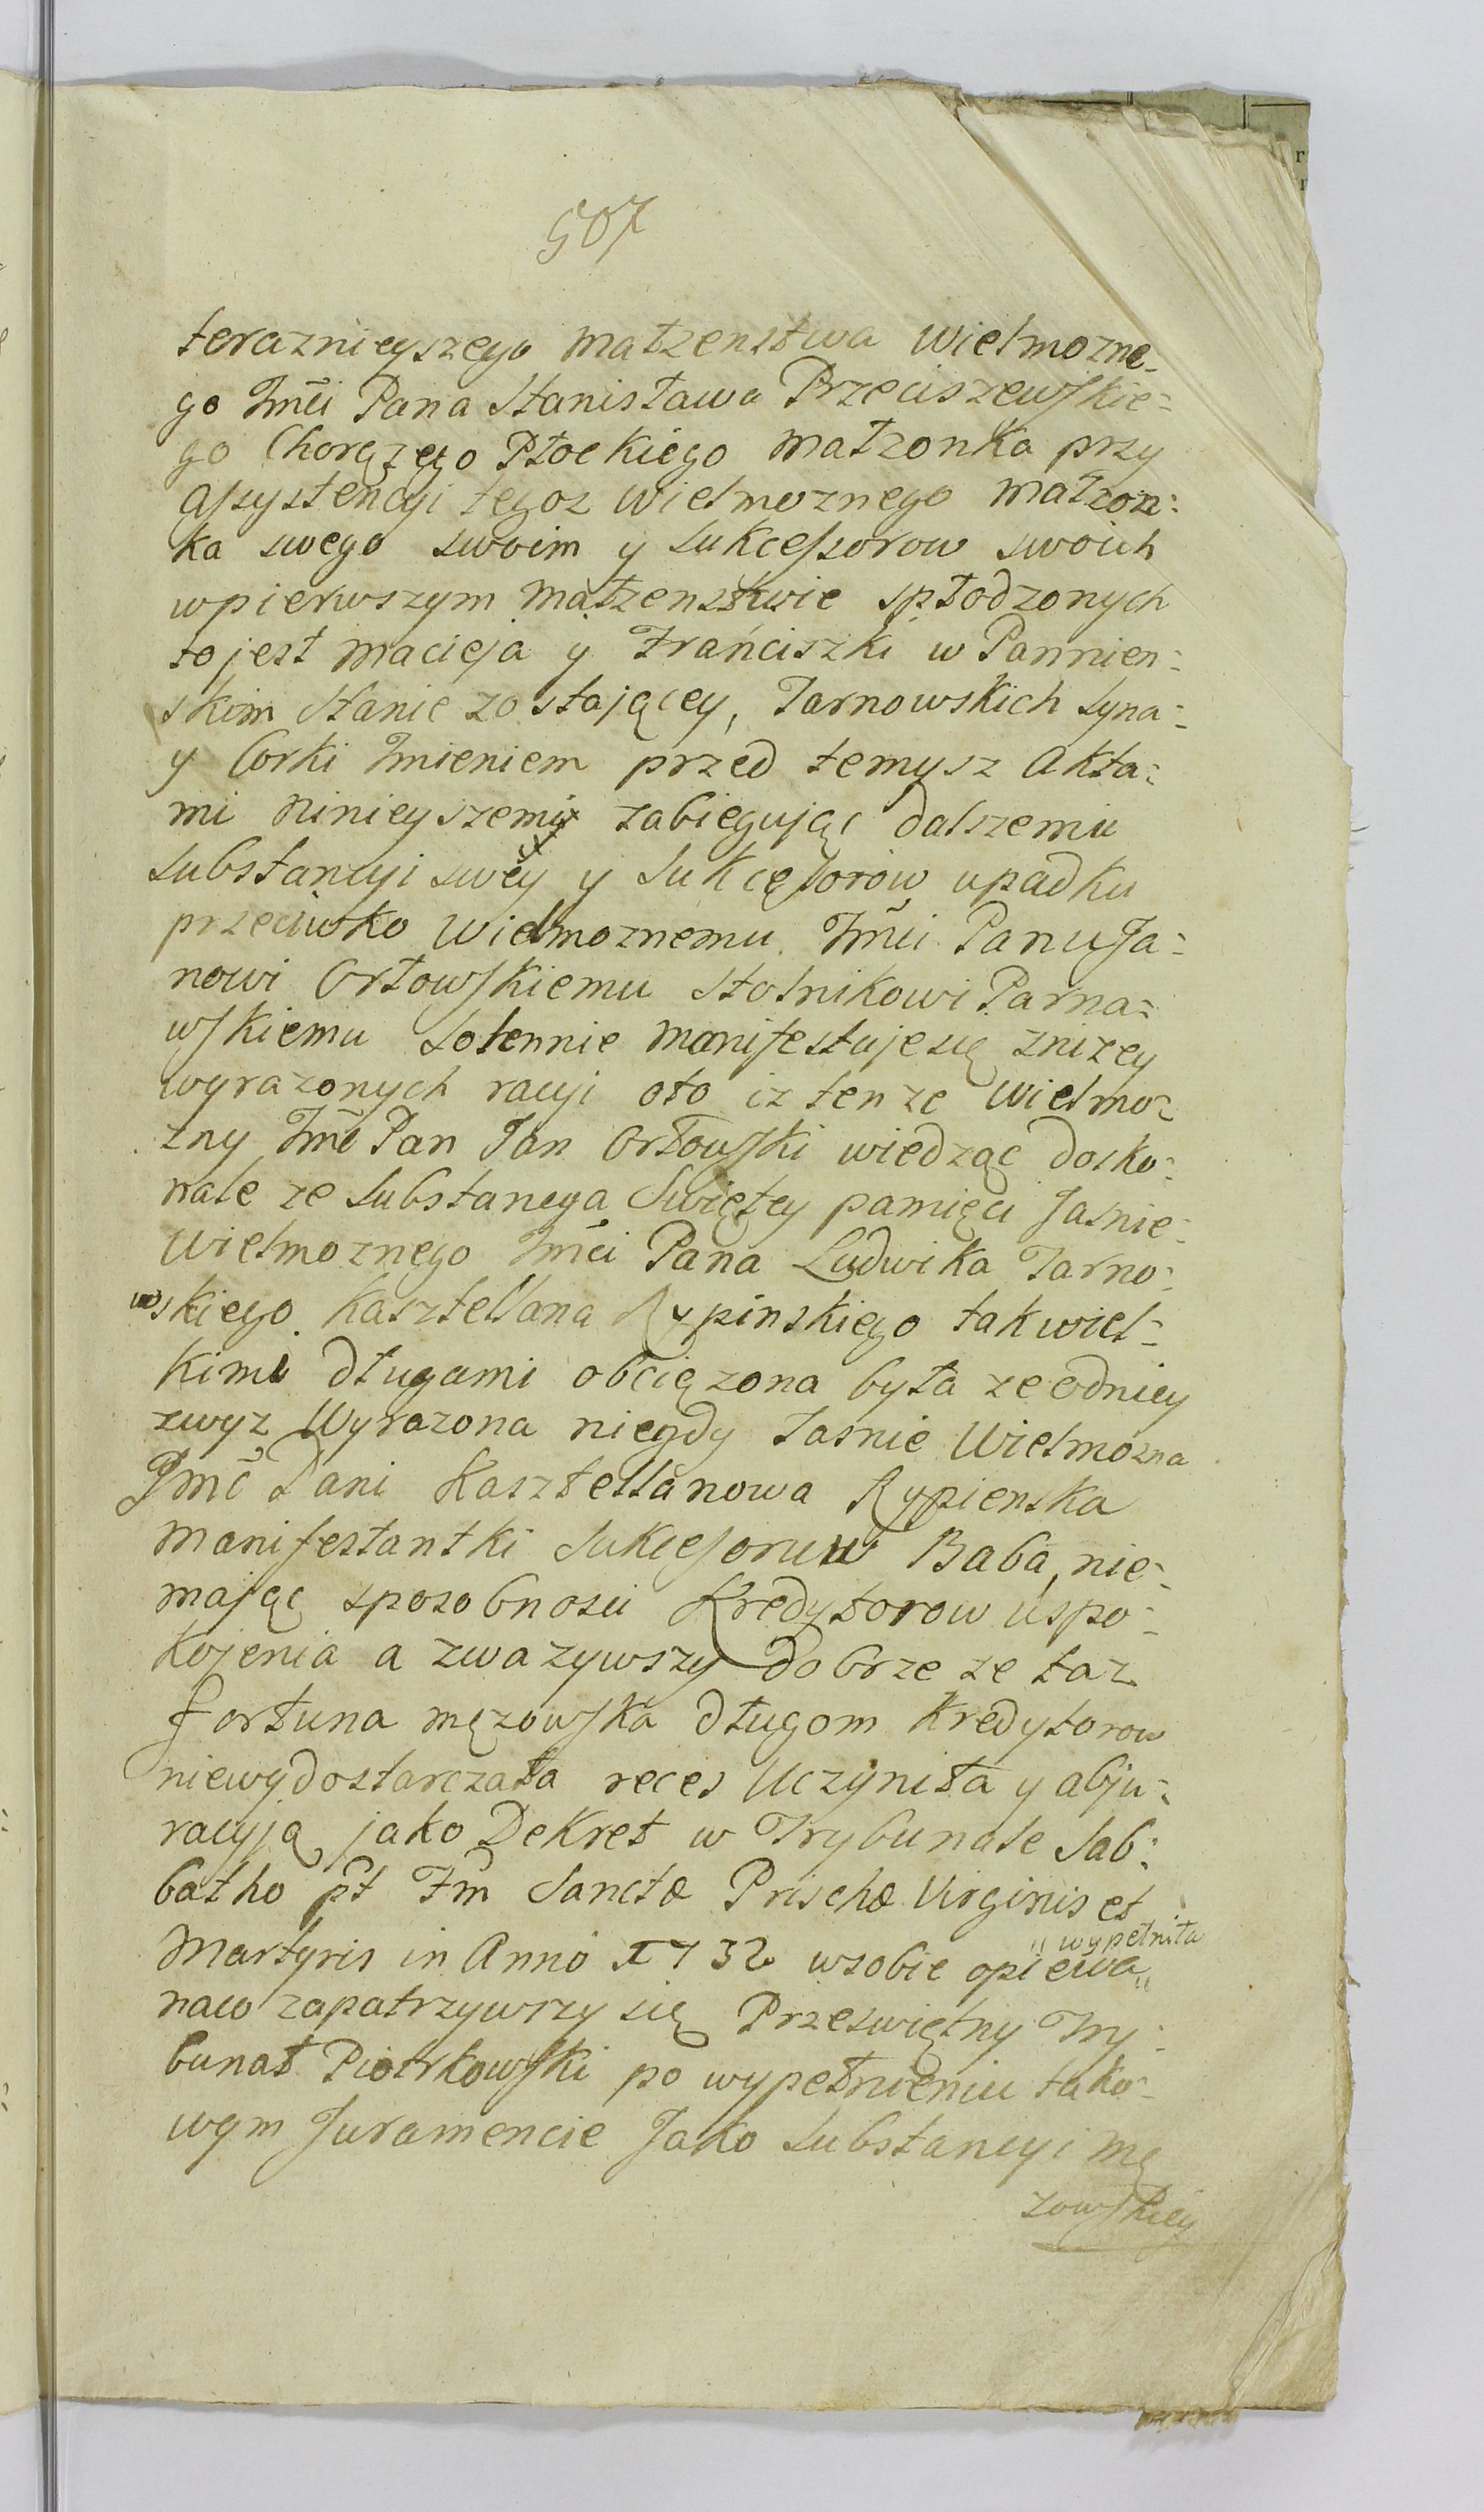 507
teraznieyszego małzenstwa wielmozne-
go Jmci Pana Stanisława Przeciszewskie-
go Chorązego Płockiego małzonka przy
assystencyi tegoz wielmoznego małzon-
ka swego swoim y sukcessorow swoich
wpierwszym małzenstwie spłodzonych
to jest Macieja y Franciszki w Pannien-
skim stanie zostającey, Tarnowskich syna-
y Corki Jmieniem przed temysz Akta-
mi ninieyszemi zabiegując dalszemu
substancyi swey y sukcęssorow upadku
przeciwko wielmoznemu Jmci Panu Ja-
nowi Orłowskiemu Stolnikowi Parna-
wskiemu solennie manifestuje się znizey
wyrazonych racyi oto iz tenze wielmo-
zny Jmć Pan Jan Orłowski wiedząc dosko-
nale ze substancya Swiętey pamięci Jasnie-
wielmoznego Jmci Pana Ludwika Tarno-
wskiego Kasztellana Rypinskiego tak wiel-
kimi długami obciązona była ze odniey
zwyz Wyrazona niegdy Jasnie Wielmozna
Jmć Pani Kasztellanowa Rypienska
manifestantki sukcessorow Baba, nie-
mając sposobnosci Kredytorow uspo-
kojenia a zwazywszy dobrze ze taz
fortuna męzowska długom kredytorow
niewydostarczała reces Uczyniła y abju-
racyją jako Dekret w Trybunale Sab-
batho pt Fm Sanctæ Prischæ Virginis et
" wypełniła
Martyris in Anno 1732 wsobie opiewa "
naco zapatrzywszy się Przeswiętny Try-
bunał Piotrkowski po wypełnieniu tako-
wym Juramencie Jako substancyi mę
zowskiey